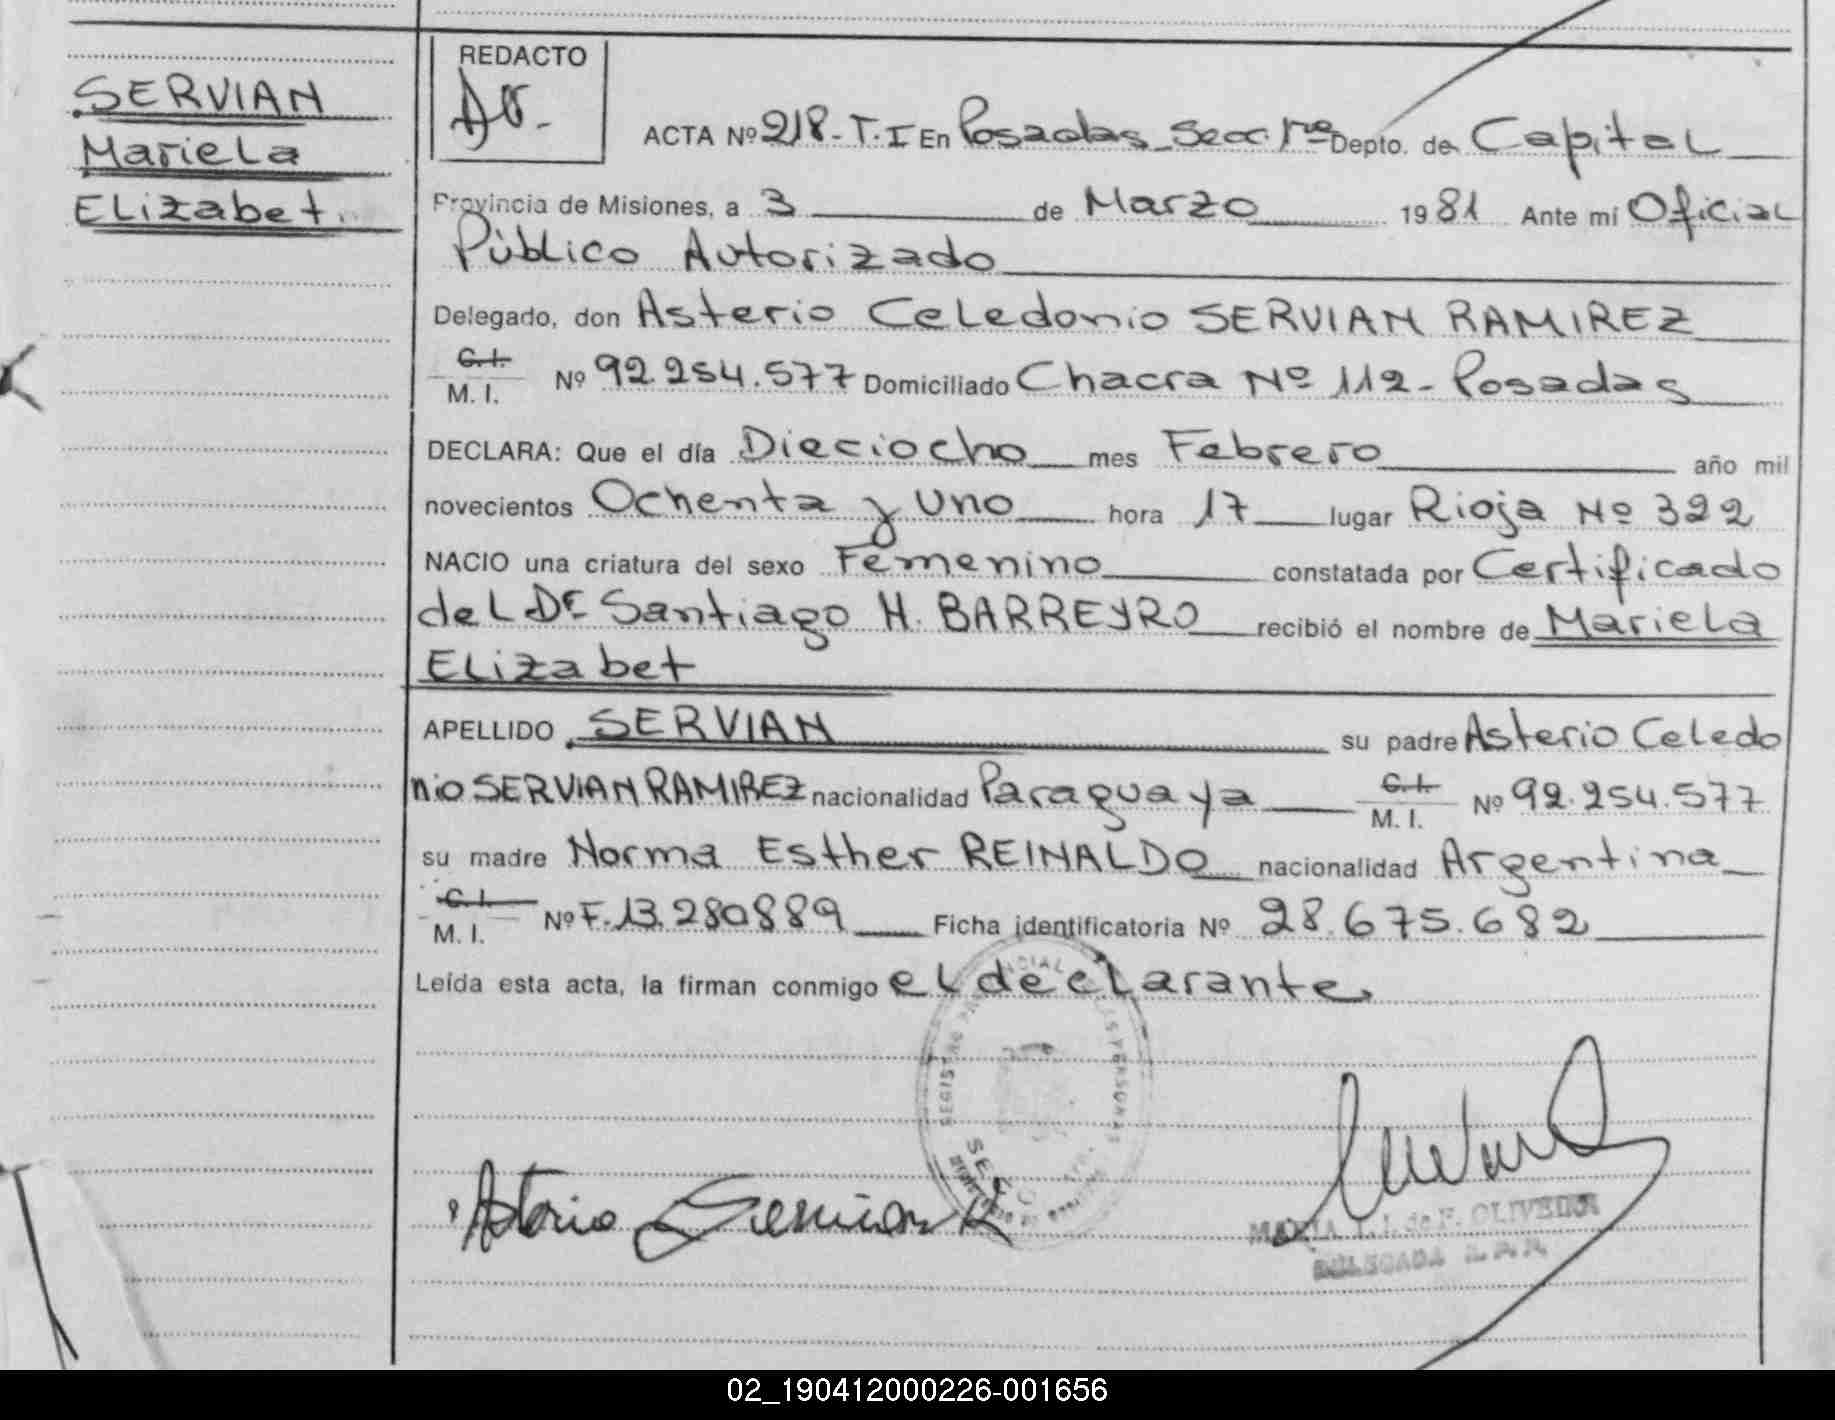 SERVIAN
Mariela
Elizabet.
REDACTO
ACTA Nº 218-T.I En Posadas Secc. 1ra Depto. de Capital
Provincia de Misiones, a 3 de Marzo 1981 Ante mí Oficial
Público Autorizado
Delegado, don Asterio Celedonio SERVIAN RAMIREZ
C.I.
M. I. Nº 92.254.577 Domiciliado Chacra Nº 112- Posadas
DECLARA: Que el día Dieciocho mes Febrero año mil
novecientos Ochenta y Uno hora 17 lugar Rioja Nº 322
NACIO una criatura del sexo Femenino constatada por Certificado
del Dr Santiago H. BARREYRO recibió el nombre de Mariela
Elizabet
APELLIDO SERVIAN su padre Asterio Celedo
nio SERVIAN RAMIREZ nacionalidad Paraguaya C.I. M. I. Nº 92.254.577
su madre Norma Esther REINALDO nacionalidad Argentina
C.I.
M. I. Nº F.13.280889 Ficha identificatoria Nº 28.675.682
Leída esta acta, la firman conmigo el declarante.
Asterio Servian R
MARIA T. J. de F. OLIVEIRA
DELEGADA R.P.P.
02_190412000226-001656